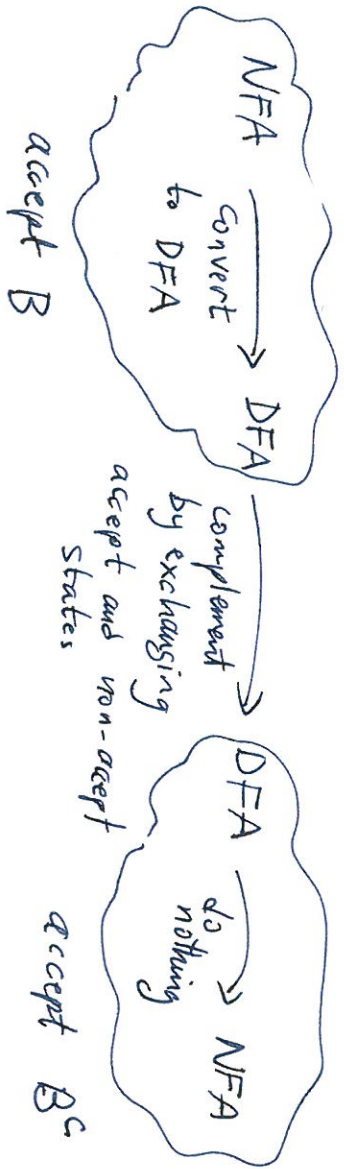 NFA
convert
to DFA
DFA
accept B
complement
by exchanging
accept and non-accept
states
DFA
do
nothing
NFA
accept Bᶜ